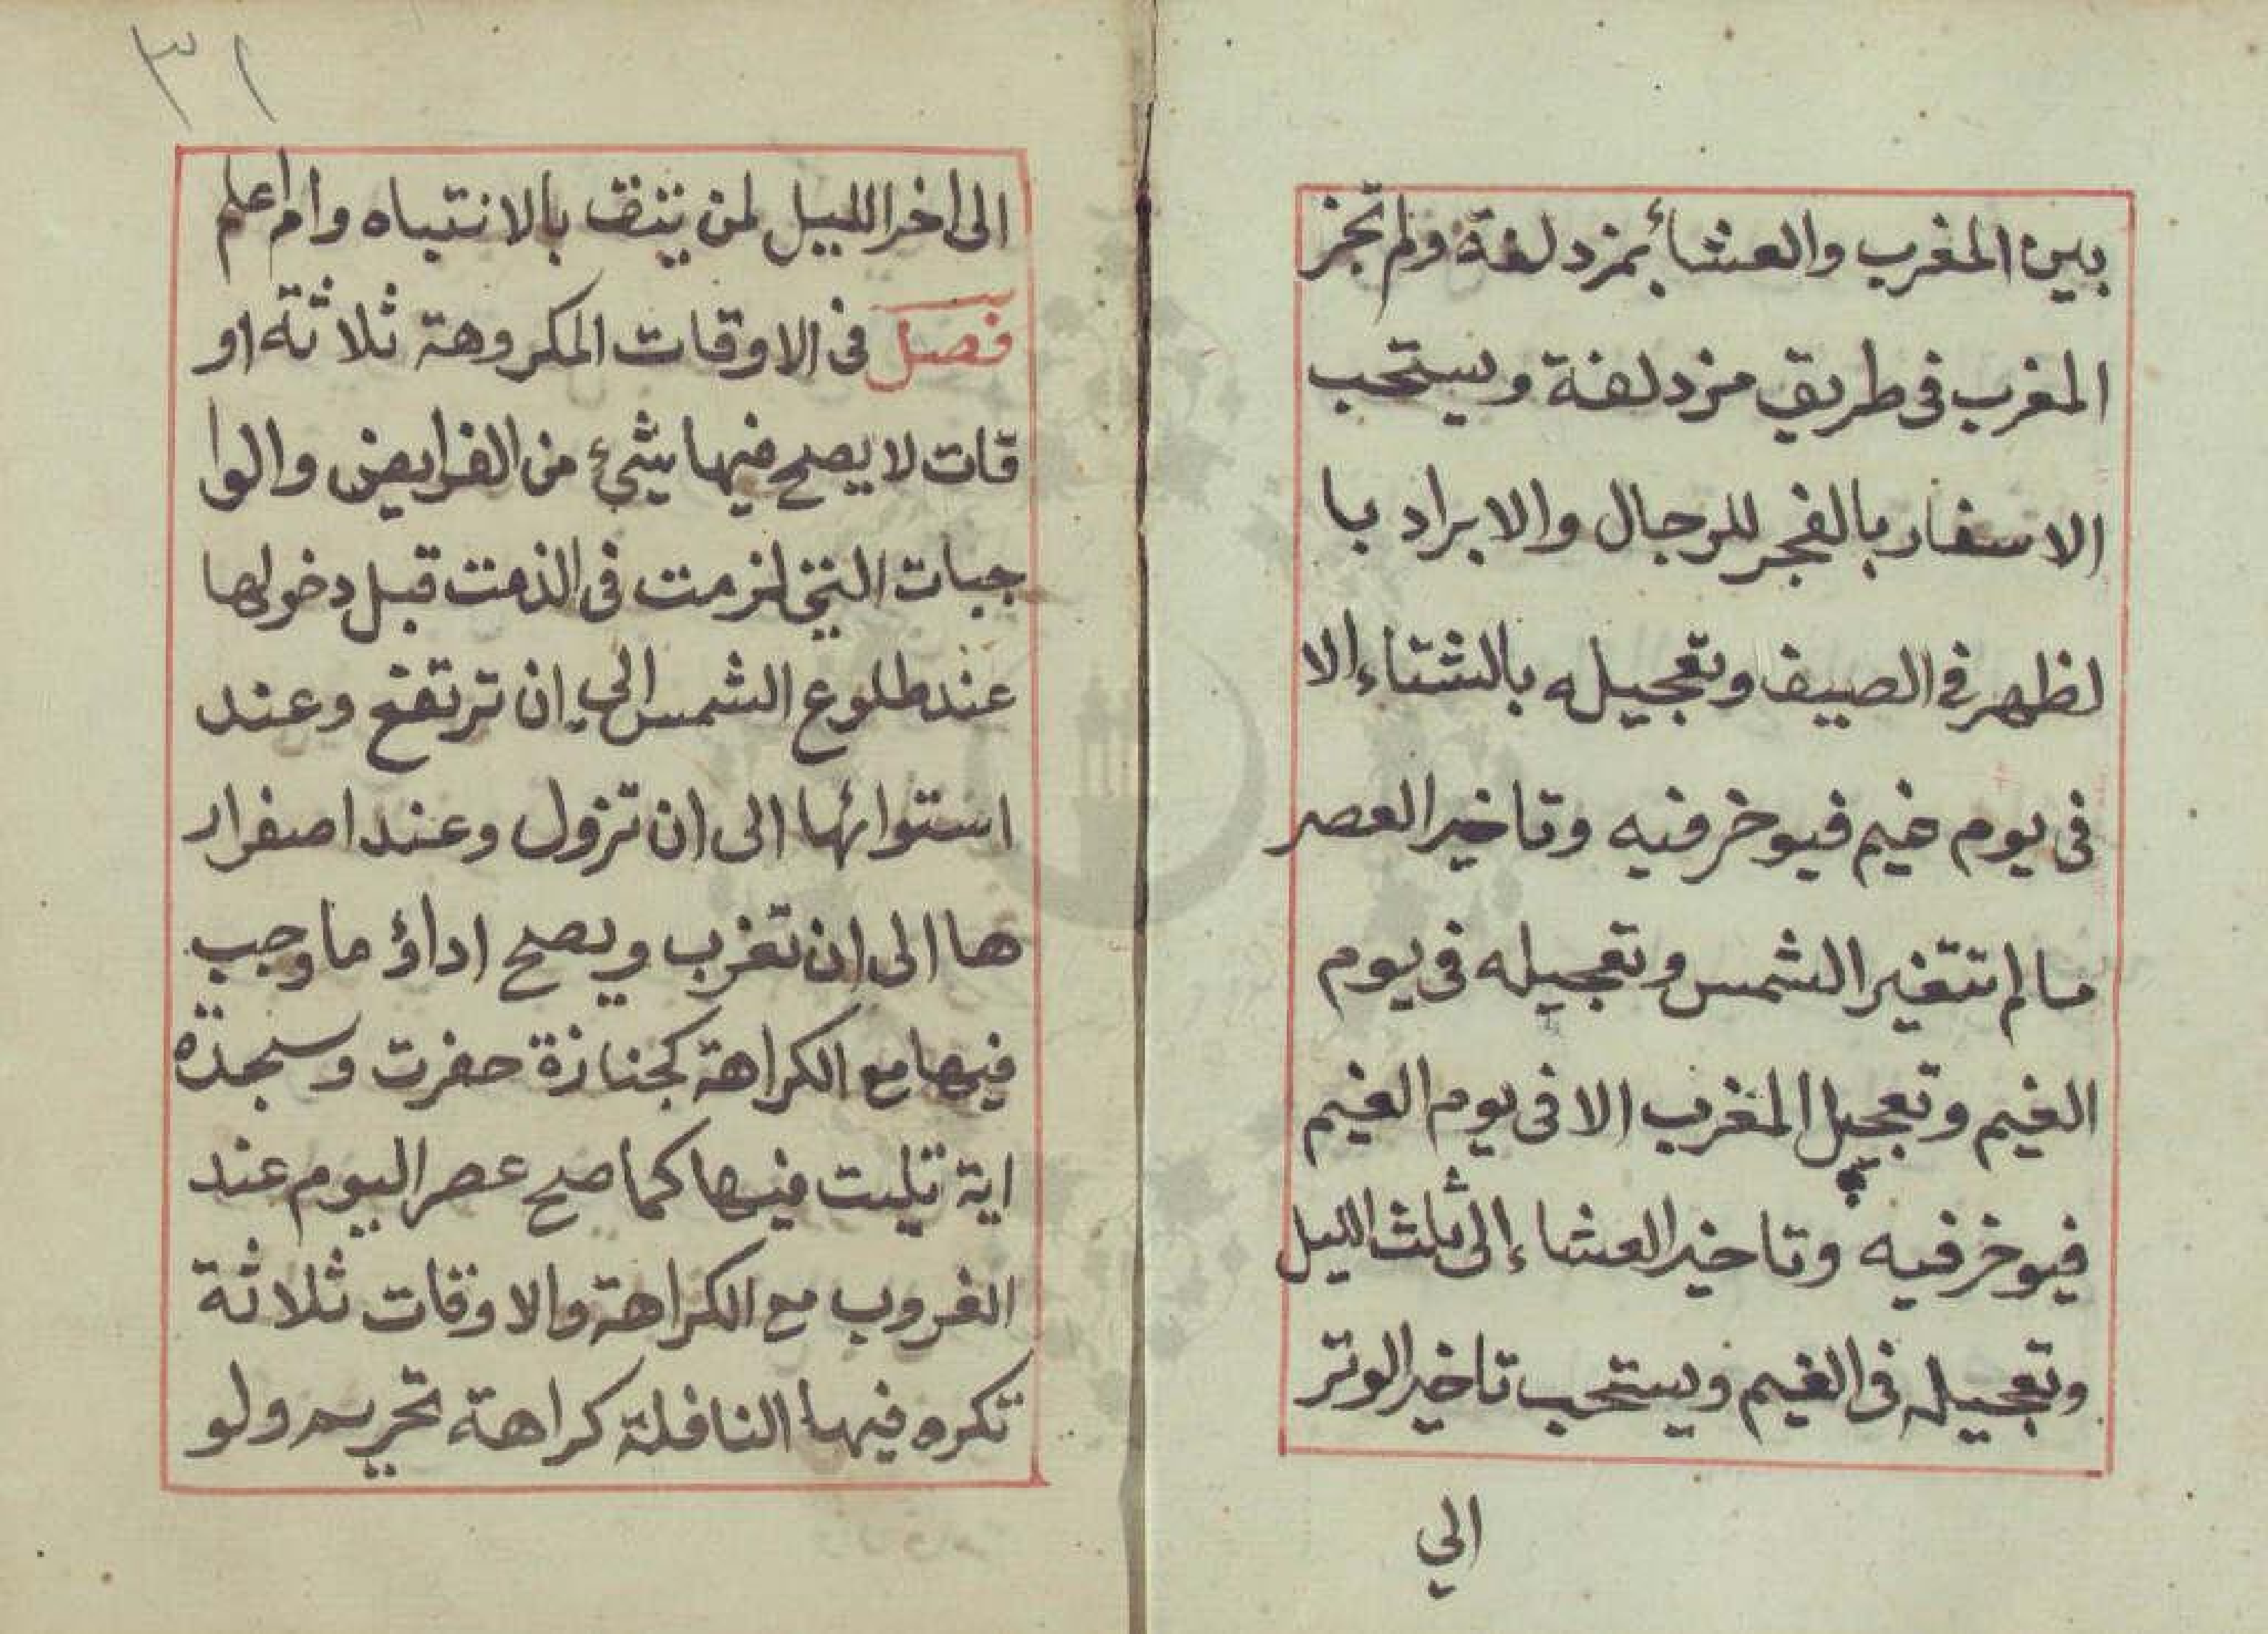 بين المغرب والعشائ بمزدلفة ولم تجز
المغرب فى طريق مزدلفة ويستحب
الاسفار بالفجر للرجال والابراد با
لظهر فى الصيف وتعجيله بالشتاء الا
فى يوم غيم فيوخر فيه وتاخير العصر
مالم تتغير الشمس وتعجيله فى يوم
الغيم وتعجيل المغرب الا فى يوم الغيم
فيوخر فيه وتاخير العشاء إلى ثلث الليل
وتعجيله فى الغيم ويستحب تاخير الوتر
الي
٣١
الى اخر الليل لمن يثق بالانتباه واعلم
فصل فى الاوقات المكروهة ثلاثة او
قات لا يصح فيها شئ من الفرايض والوا
جبات التى لزمت فى الذمت قبل دخولها
عند طلوع الشمس الي ان ترتفع وعند
استوائها الى ان تزول وعند اصفرار
ها الى ان تغرب ويصح اداؤ ما وجب
فيها مع الكراهة كجنازة حضرت وسجدة
اية تليت فيها كما صح عصر اليوم عند
الغروب مع الكراهة والاوقات ثلاثة
تكره فيها النافلة كراهة تحريم ولو